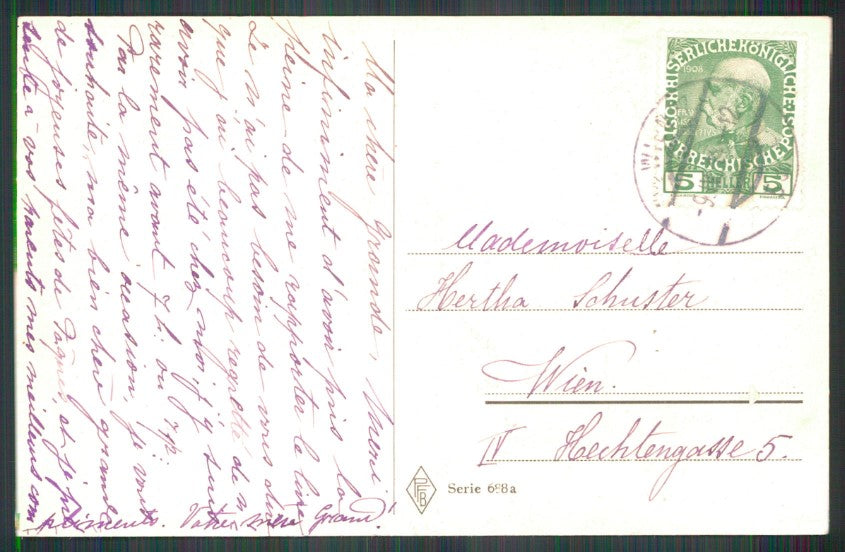 Ma chère Grande, Merci
infiniment d'avoir pris la
peine de me rapporter le livre
Je n'ai pas besoin de vous dire
que j'ai beaucoup regretté de n'
avoir pas été chez moi; j'y suis
rarement avant 7 h. ou 7½
Par la même occasion je vous
souhaite, ma bien chère grande
de joyeuses fêtes de Pâques, et je pré
sente à vos parents mes meilleurs com
pliments. Votre mère Grand!
Mademoiselle
Hertha Schuster
Wien.
IV Hechtengasse 5.
PFB
Serie 688a
KAISERLICHE KÖNIGLICHE ÖSTERREICHISCHE POST
1908
5 HELLER 5